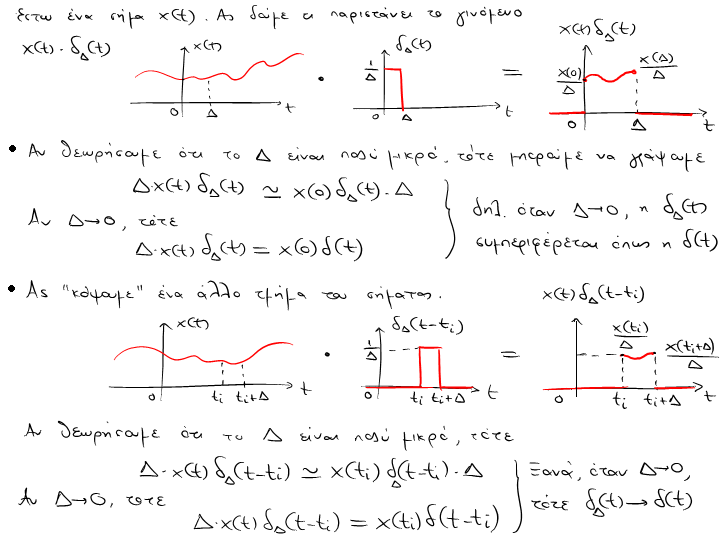 Έστω ένα σήμα x(t). Ας δούμε τι παριστάνει το γινόμενο
x(t) · δ_Δ(t)
x(t)
0 Δ t
•
δ_Δ(t)
1/Δ
0 Δ t
=
x(t) δ_Δ(t)
x(0)/Δ x(Δ)/Δ
0 Δ t
• Αν θεωρήσουμε ότι το Δ είναι πολύ μικρό, τότε μπορούμε να γράψουμε
Δ·x(t) δ_Δ(t) ≃ x(0) δ_Δ(t)·Δ
Αν Δ→0, τότε
Δ·x(t) δ_Δ(t) = x(0) δ(t)
δηλ. όταν Δ→0, η δ_Δ(t)
συμπεριφέρεται όπως η δ(t)
• Ας "κόψουμε" ένα άλλο τμήμα του σήματος.
x(t)
0 ti ti+Δ t
•
δ_Δ(t-ti)
1/Δ
0 ti ti+Δ t
=
x(t) δ_Δ(t-ti)
x(ti)/Δ x(ti+Δ)/Δ
0 ti ti+Δ t
Αν θεωρήσουμε ότι το Δ είναι πολύ μικρό, τότε
Δ·x(t) δ_Δ(t-ti) ≃ x(ti) δ_Δ(t-ti)·Δ
Αν Δ→0, τότε
Δ·x(t) δ_Δ(t-ti) = x(ti) δ(t-ti)
Ξανά, όταν Δ→0,
τότε δ_Δ(t) → δ(t)